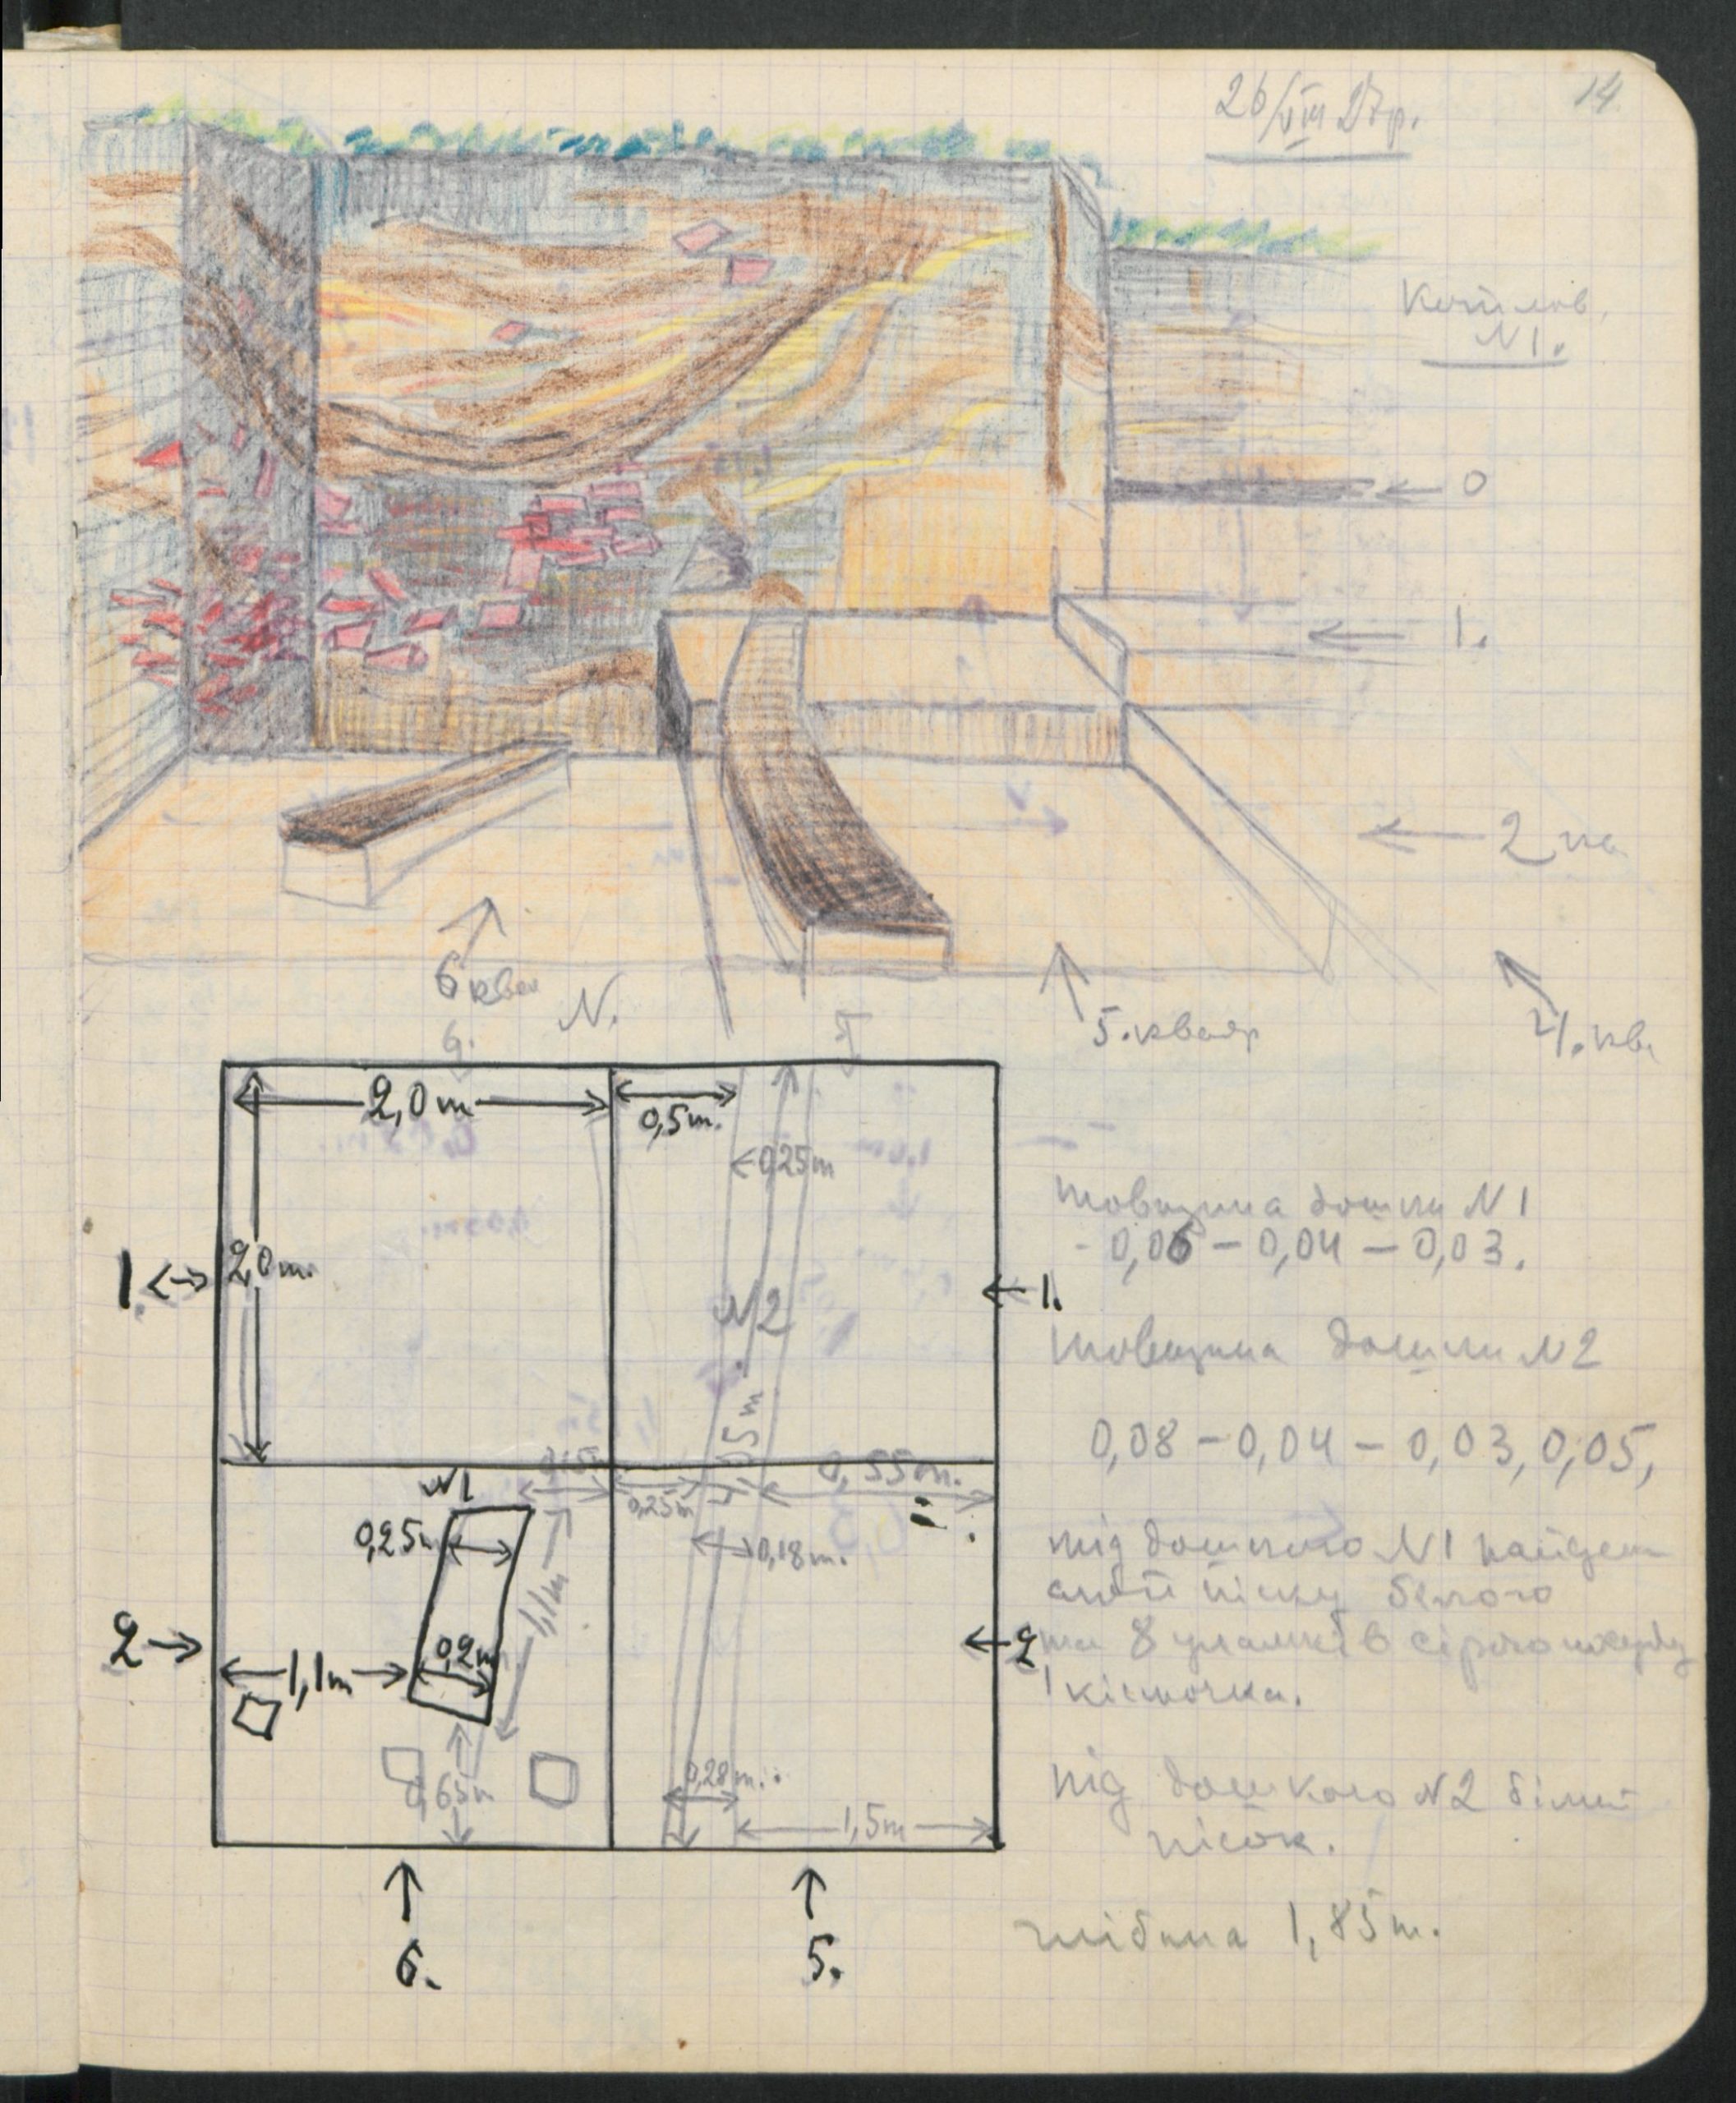 26/VIII 27р.
14
Котлов.
N1.
0
1.
2
6 квад
N.
5. квадр
4. кв.
6.
5
2,0 m
0,5 m.
0,25 m
2,0 m.
1.
1.
N2
N1
0,25 m
0,55 m.
0,25 m
0,18 m.
1,1 m
2
2
1,1 m
0,2 m
0,65 m
0,28 m.
1,5 m
6.
5.
товщина дошки N1
- 0,06 – 0,04 – 0,03.
товщина дошки N2
0,08 – 0,04 – 0,03, 0,05,
під дошкою N1
піску білого
та 8 уламків сірого
1 кісточка.
під дошкою N2 білий
пісок.
глибина 1,85 m.